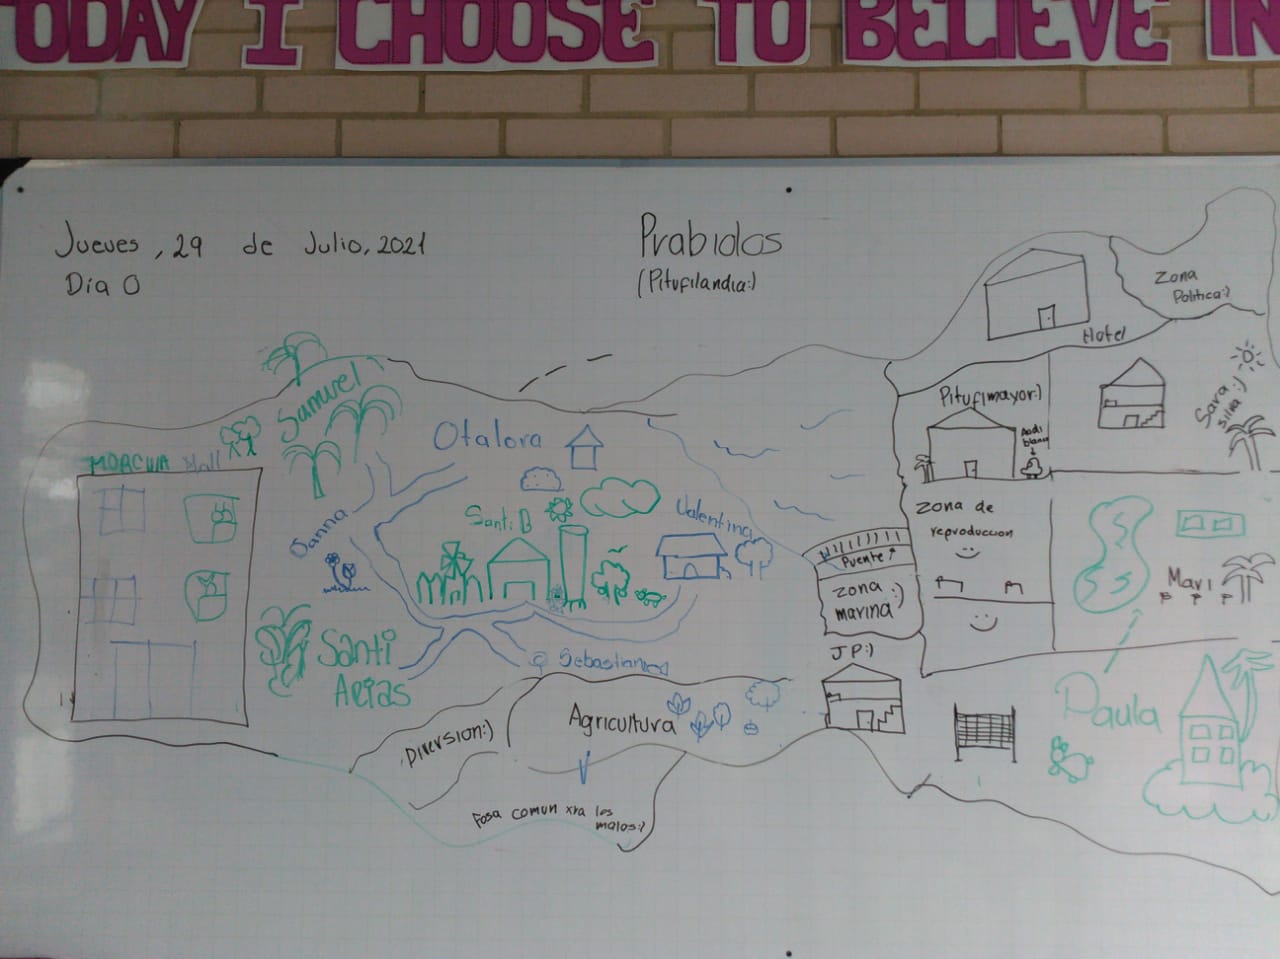 TODAY I CHOOSE TO BELIEVE IN
Jueves, 29 de Julio, 2021
Dia 0
Prabidos
(Pitufilandia:)
Zona
Politica:)
Hotel
Samuel
Pitufimayor:)
Sara
Silva:)
Otalora
MORCILLA Mall
Santi B
Valentina
Danna
Zona de
reproduccion
Puente
Zona :)
marina
Mari
Santi
Arias
Sebastian
JP:)
Paula
Agricultura
Diversion:)
Fosa comun xra los
malos:)